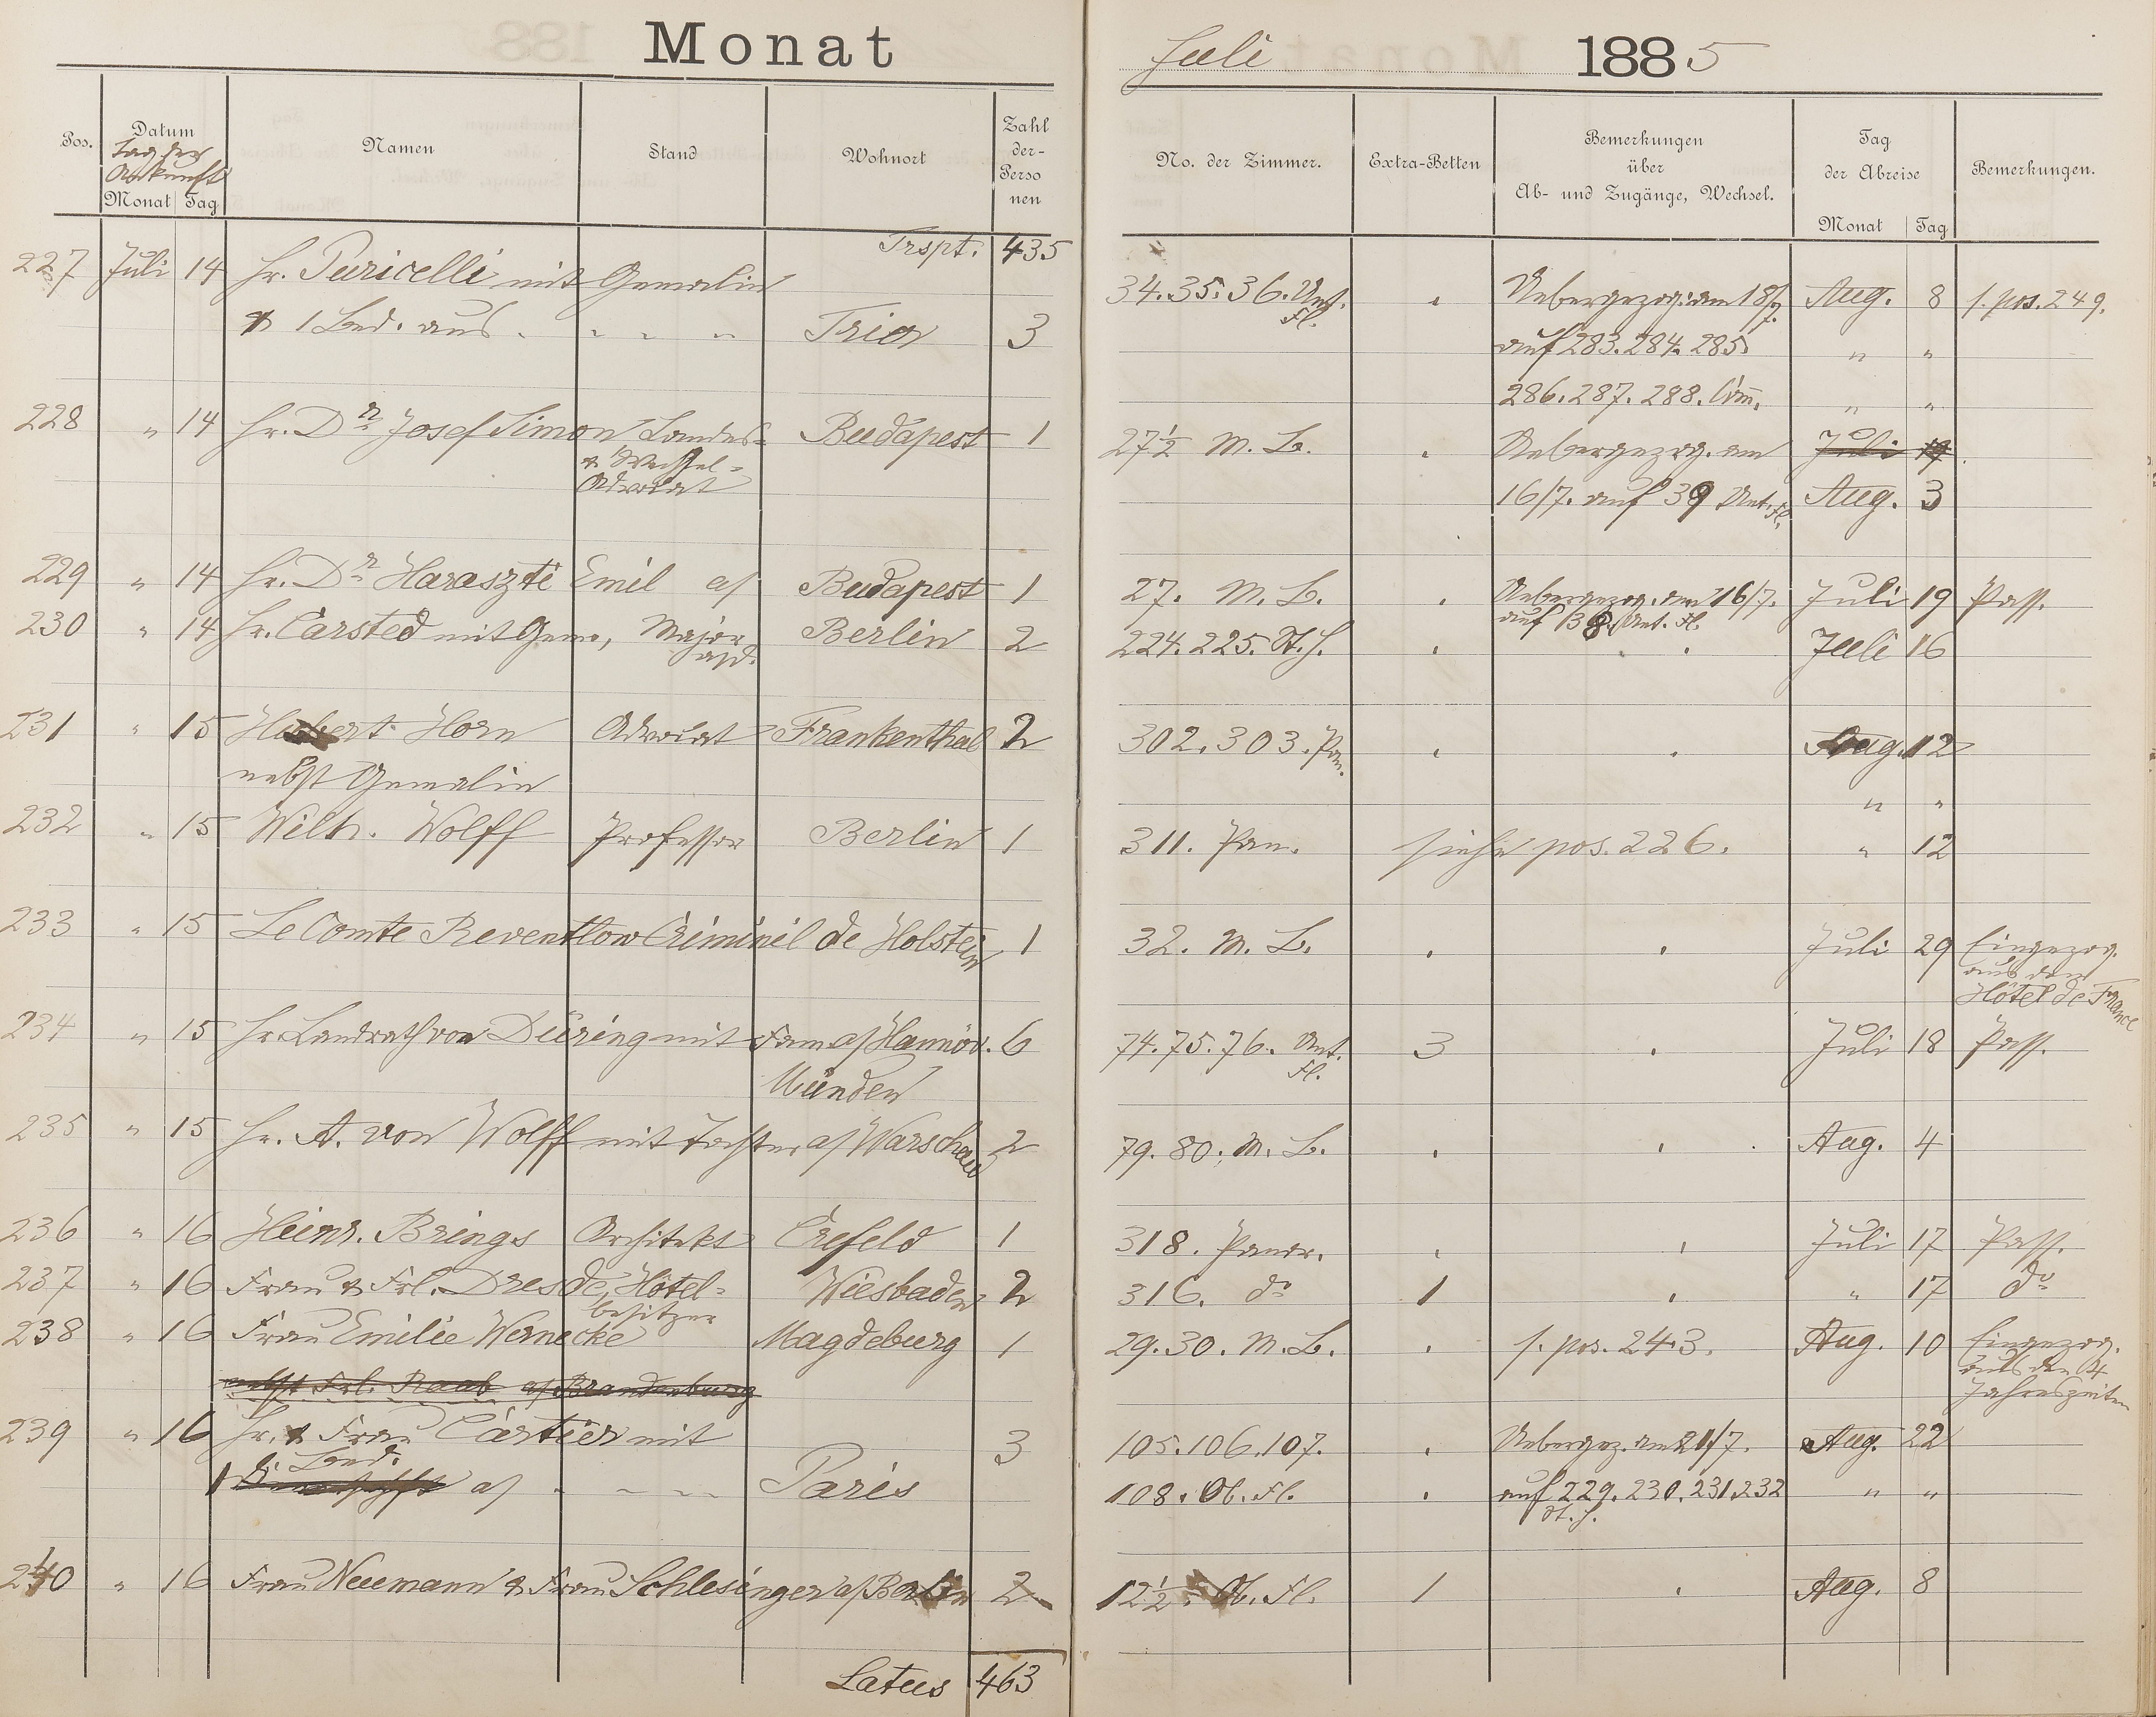 Monat
Juli 1885
Pos. Datum Namen Stand Wohnort Zahl der Perso nen
Tag der Ankunft
Monat Tag
No. der Zimmer. Extra-Betten Bemerkungen über Ab- und Zugänge, Wechsel. Tag der Abreise Bemerkungen.
Monat Tag
Trspt. 435
227 Juli 14 Hr. Puricelli mit Gemalin 34. 35. 36. Unt. Fl. Uebergezog. am 18/7. Aug. 8 s. pos. 249.
& 1 Bed. aus - - - - Trier 3 auf 283. 284. 285. " "
286. 287. 288. " "
228 " 14 Hr. Dr Josef Simon Landes- Budapest 1 27½ M. B. Uebergezog. am Juli 19
& Wechsel- Advocat 16/7. auf 39 Unt. Fl. Aug. 3
229 " 14 Hr. Dr Haraszti Emil a/ Budapest 1 27. M. B. Uebergezog. am 16/7. Juli 19 Pass.
auf 38 Unt. Fl.
230 " 14 Hr. Carsted mit Gem., Major a/D. Berlin 2 224. 225. St. H. Juli 16
231 " 15 Hubert Horn Advocat Frankenthal 2 302. 303. Pan. Aug. 12
nebst Gemalin " "
232 " 15 Wilh. Wolff Professor Berlin 1 311. Pan. siehe pos. 226. " 12
233 " 15 Le Comte Reventlow Criminil de Holstein 1 32. M. B. Juli 29 Eingezog.
aus dem
Hôtel de France
234 " 15 Hr. Landrath von Düring mit Fam a/ Hannöv. 6 74. 75. 76. Unt. Fl. 3 Juli 18 Pass.
Münden
235 " 15 Hr. A. von Wolff mit Tochter a/ Warschau 2 79. 80. M. B. Aug. 4
236 " 16 Heinr. Brings Architekt Crefeld 1 318. Panor. Juli 17 Pass.
237 " 16 Frau & Frl. Dresde, Hôtel- Wiesbaden 2 316. do 1 " 17 do
besitzer
238 " 16 Frau Emilie Wernecke Magdeburg 1 29. 30. M. B. s. pos. 243. Aug. 10 Eingezog.
aus den 4
Jahreszeiten
nebst Frl. Raab a/ Brandenburg
239 " 16 Hr. & Frau Cartier mit 3 105. 106. 107. Uebergez. am 21/7. Aug. 22
1 Bed. a/ - - - - Paris 108. Ob. Fl. auf 229. 230. 231. 232 " "
St. H.
240 " 16 Frau Neumann & Frau Schlesinger a/ Berlin 2 12½. Ob. Fl. 1 Aug. 8
Latus 463